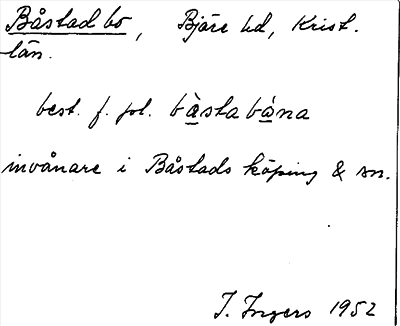 Båstadbo, Bjäre hd, Krist.
län.
best. f. pl. bàstabàna
invånare i Båstads köping & sn.
I. Ingers 1952